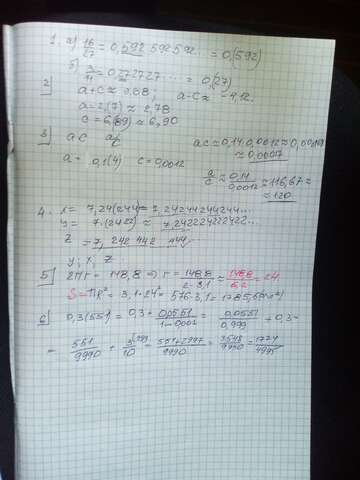 1. a) 16/27 = 0,592 592 592... = 0,(592)
б) 3/11 = 0,272727... = 0,(27)
2] a+c ≈ 9,68; a-c ≈ -4,12.
a = 2,(7) ≈ 2,78
c = 6,(89) ≈ 6,90
3] ac a/c ac = 0,14·0,0012 ≈
≈ 0,00017
a = 0,1(4) c = 0,0012 a/c ≈ 0,14/0,0012 ≈ 116,67 ≈
≈ 120
4. x = 7,24(244) = 7,24244244244...
y = 7,(2422) ≈ 7,24222422422...
z = 7, 242 442 444...
y; x; z
5] 2πr = 148,8 => r = 148,8/2·3,1 ≈ 148,8/6,2 = 24
S = πR² = 3,1·24² = 576·3,1 = 1785,6 (м²)
6] 0,3(551) = 0,3 + 0,0551/1-0,001 = 0,0551/0,999 + 0,3 =
= 551/9990 + 3/10 (999 = 551+2997/9990 = 3548/9990 = 1774/4995